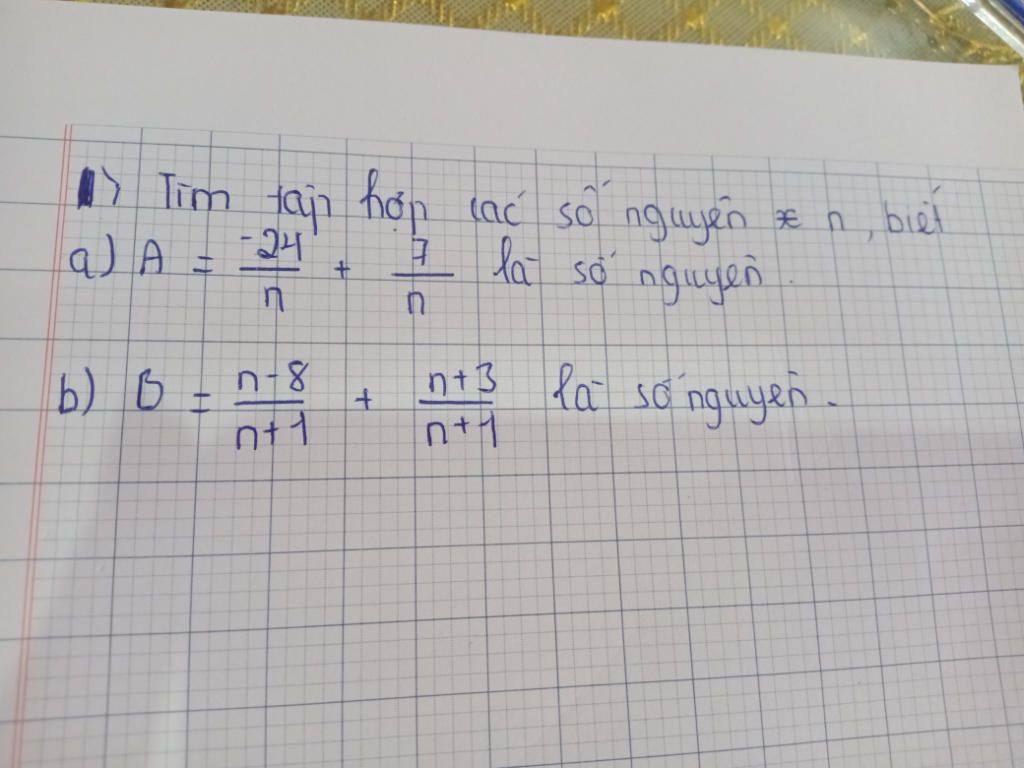 1) Tìm tập hợp các số nguyên n, biết
a) A = \frac{-24}{n} + \frac{7}{n} là số nguyên.
b) B = \frac{n-8}{n+1} + \frac{n+3}{n+1} là số nguyên.